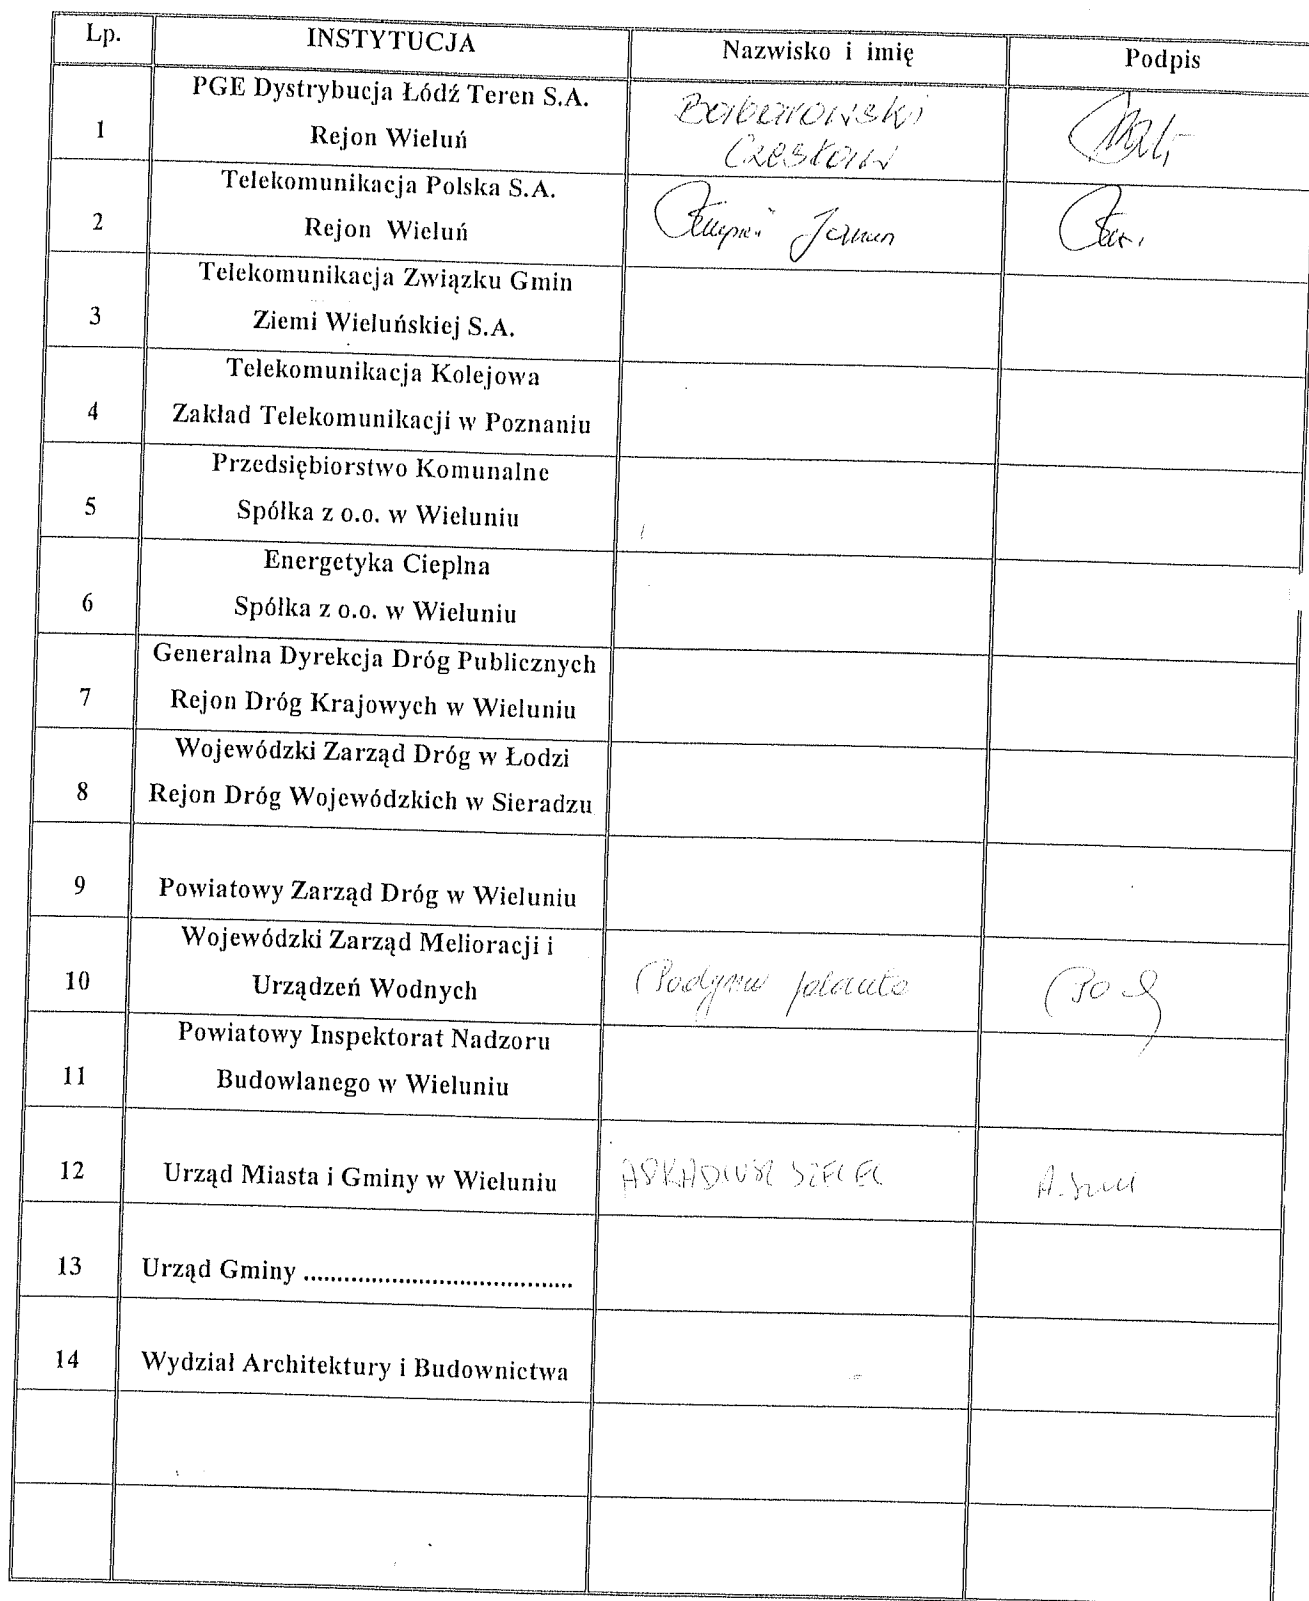 Lp.
INSTYTUCJA
Nazwisko i imię
Podpis
1
PGE Dystrybucja Łódź Teren S.A.
Rejon Wieluń
Czesław
2
Telekomunikacja Polska S.A.
Rejon Wieluń
3
Telekomunikacja Związku Gmin
Ziemi Wieluńskiej S.A.
4
Telekomunikacja Kolejowa
Zakład Telekomunikacji w Poznaniu
5
Przedsiębiorstwo Komunalne
Spółka z o.o. w Wieluniu
6
Energetyka Cieplna
Spółka z o.o. w Wieluniu
7
Generalna Dyrekcja Dróg Publicznych
Rejon Dróg Krajowych w Wieluniu
8
Wojewódzki Zarząd Dróg w Łodzi
Rejon Dróg Wojewódzkich w Sieradzu
9
Powiatowy Zarząd Dróg w Wieluniu
10
Wojewódzki Zarząd Melioracji i
Urządzeń Wodnych
11
Powiatowy Inspektorat Nadzoru
Budowlanego w Wieluniu
12
Urząd Miasta i Gminy w Wieluniu
ARKADIUSZ
13
Urząd Gminy ........................................
14
Wydział Architektury i Budownictwa